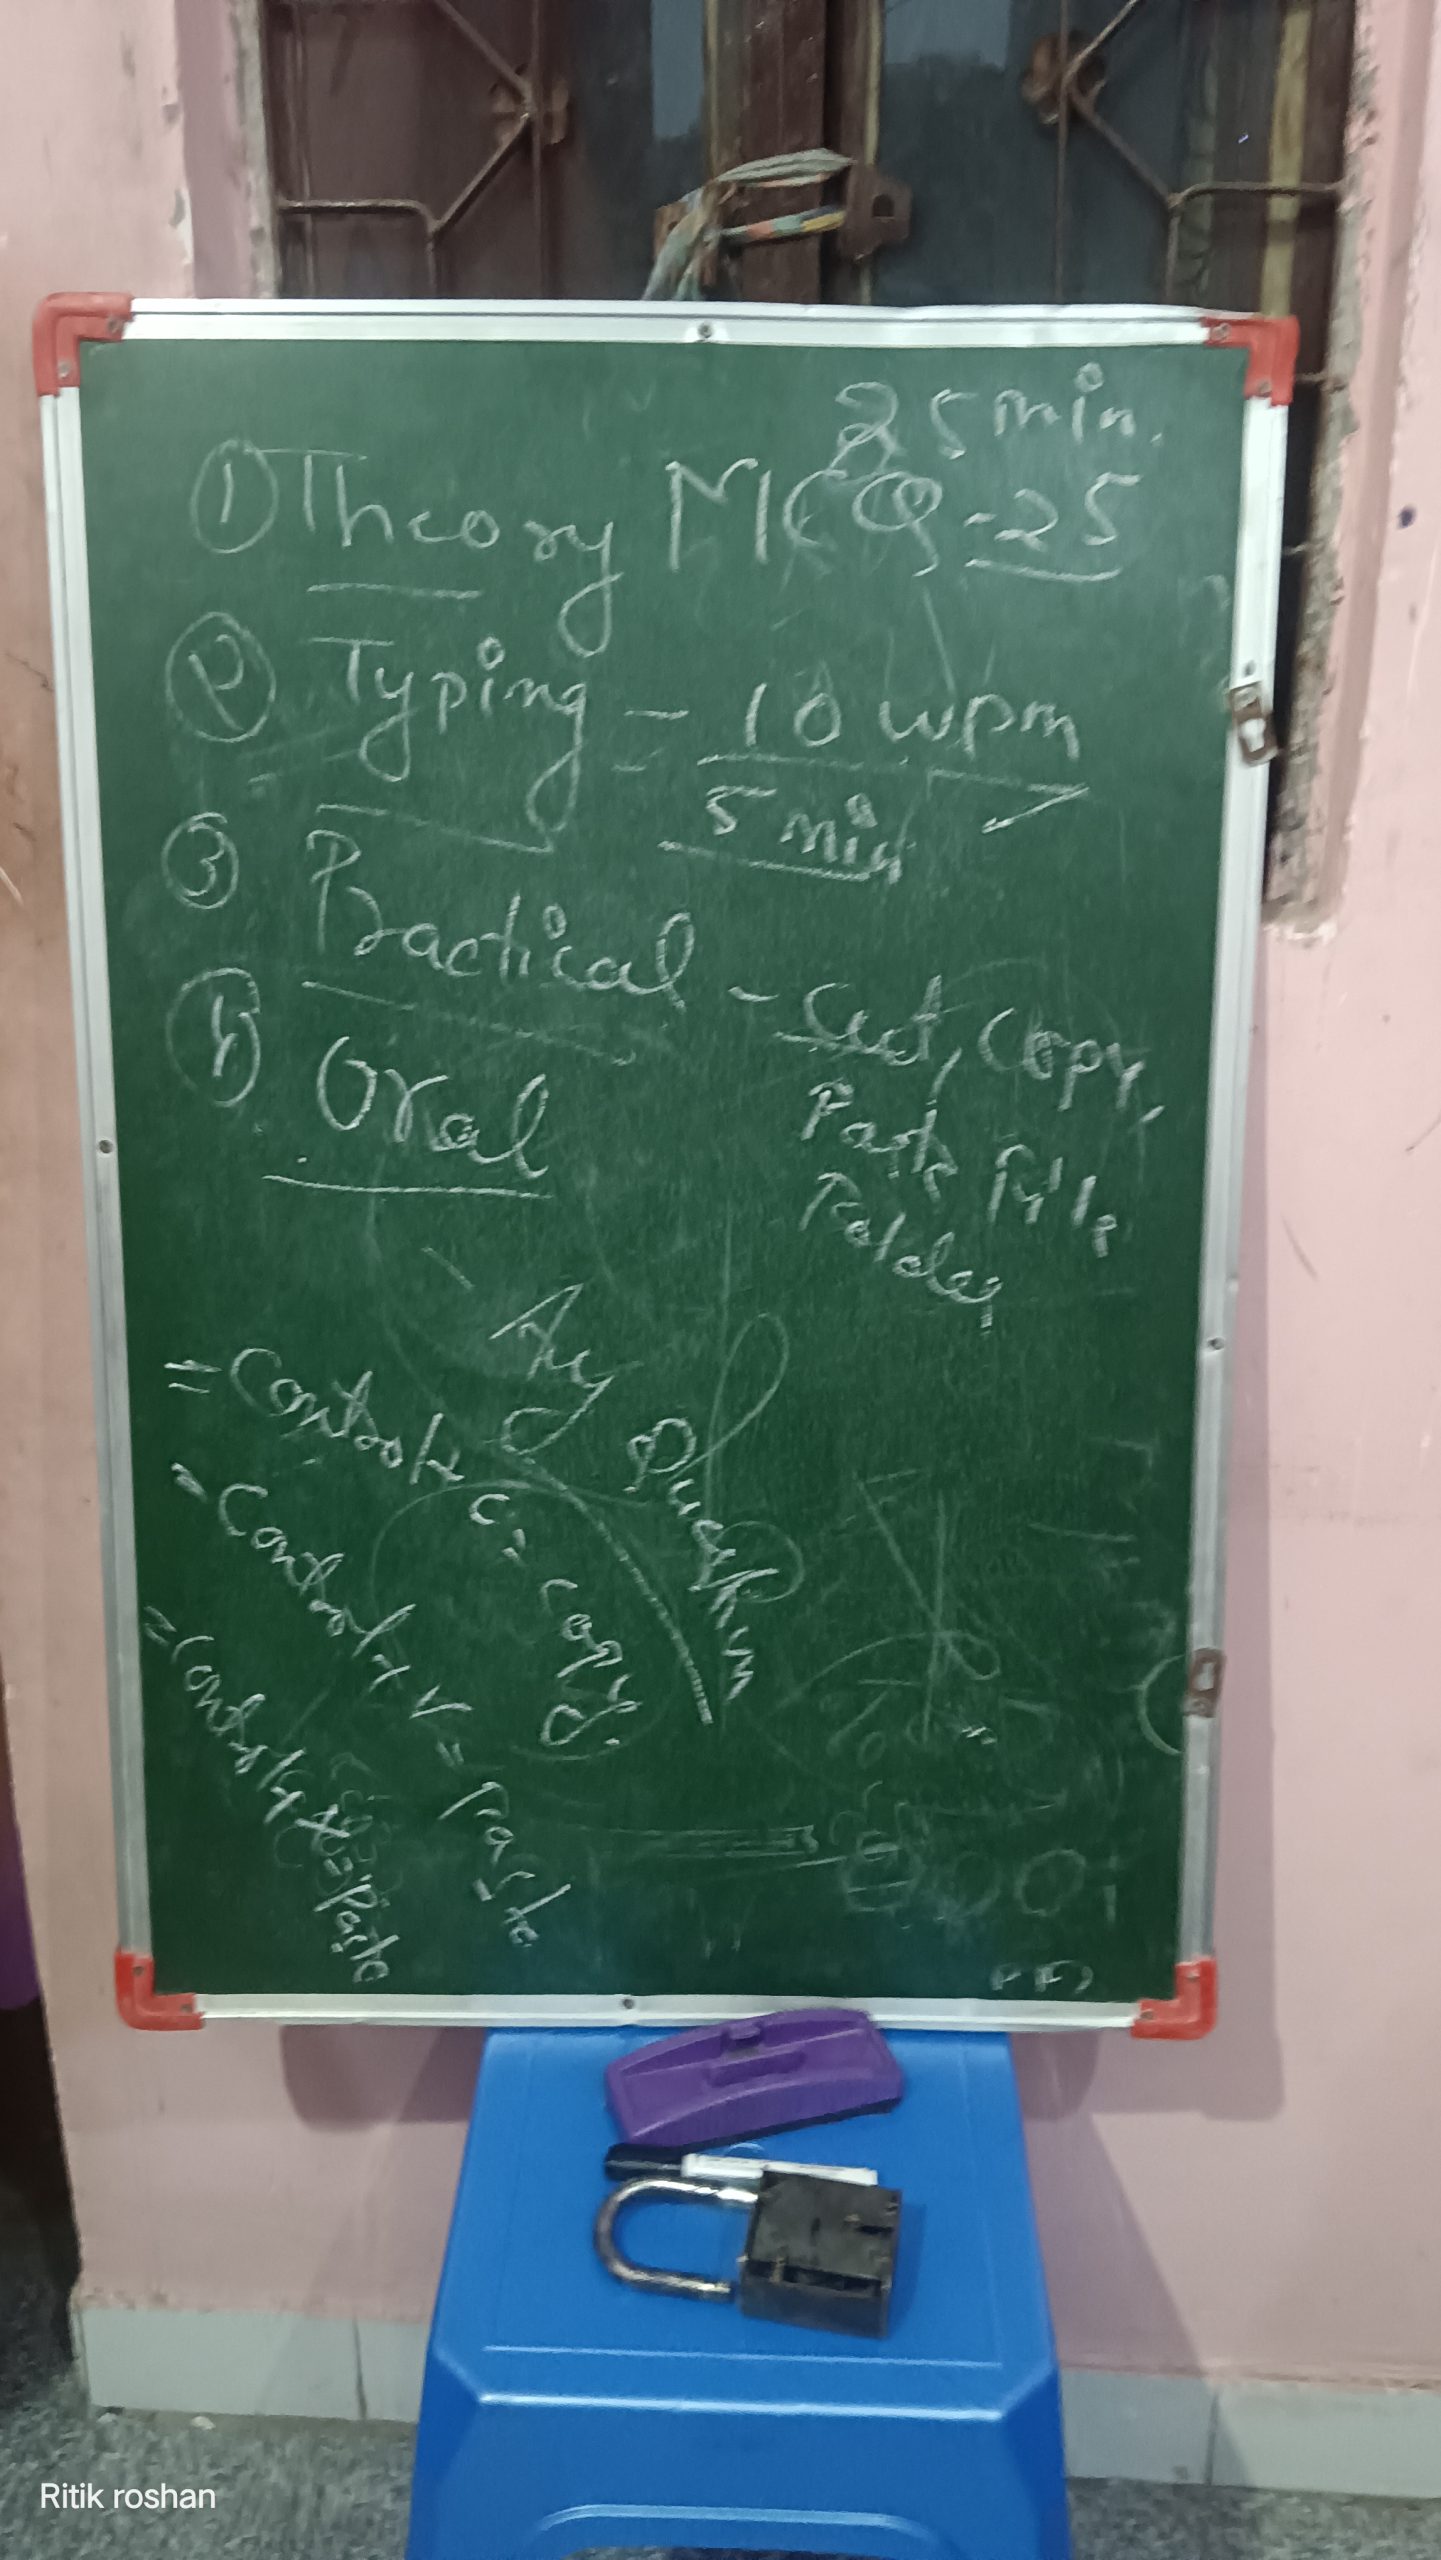 25 min.
① Theory MCQ - 25
② Typing - 10 wpm
5 min
③ Practical - Cut, Copy,
Paste File
Folder,
④ Oral
= Control + C = Copy.
= Control + V = Paste
= Control + X = Paste
Ritik roshan